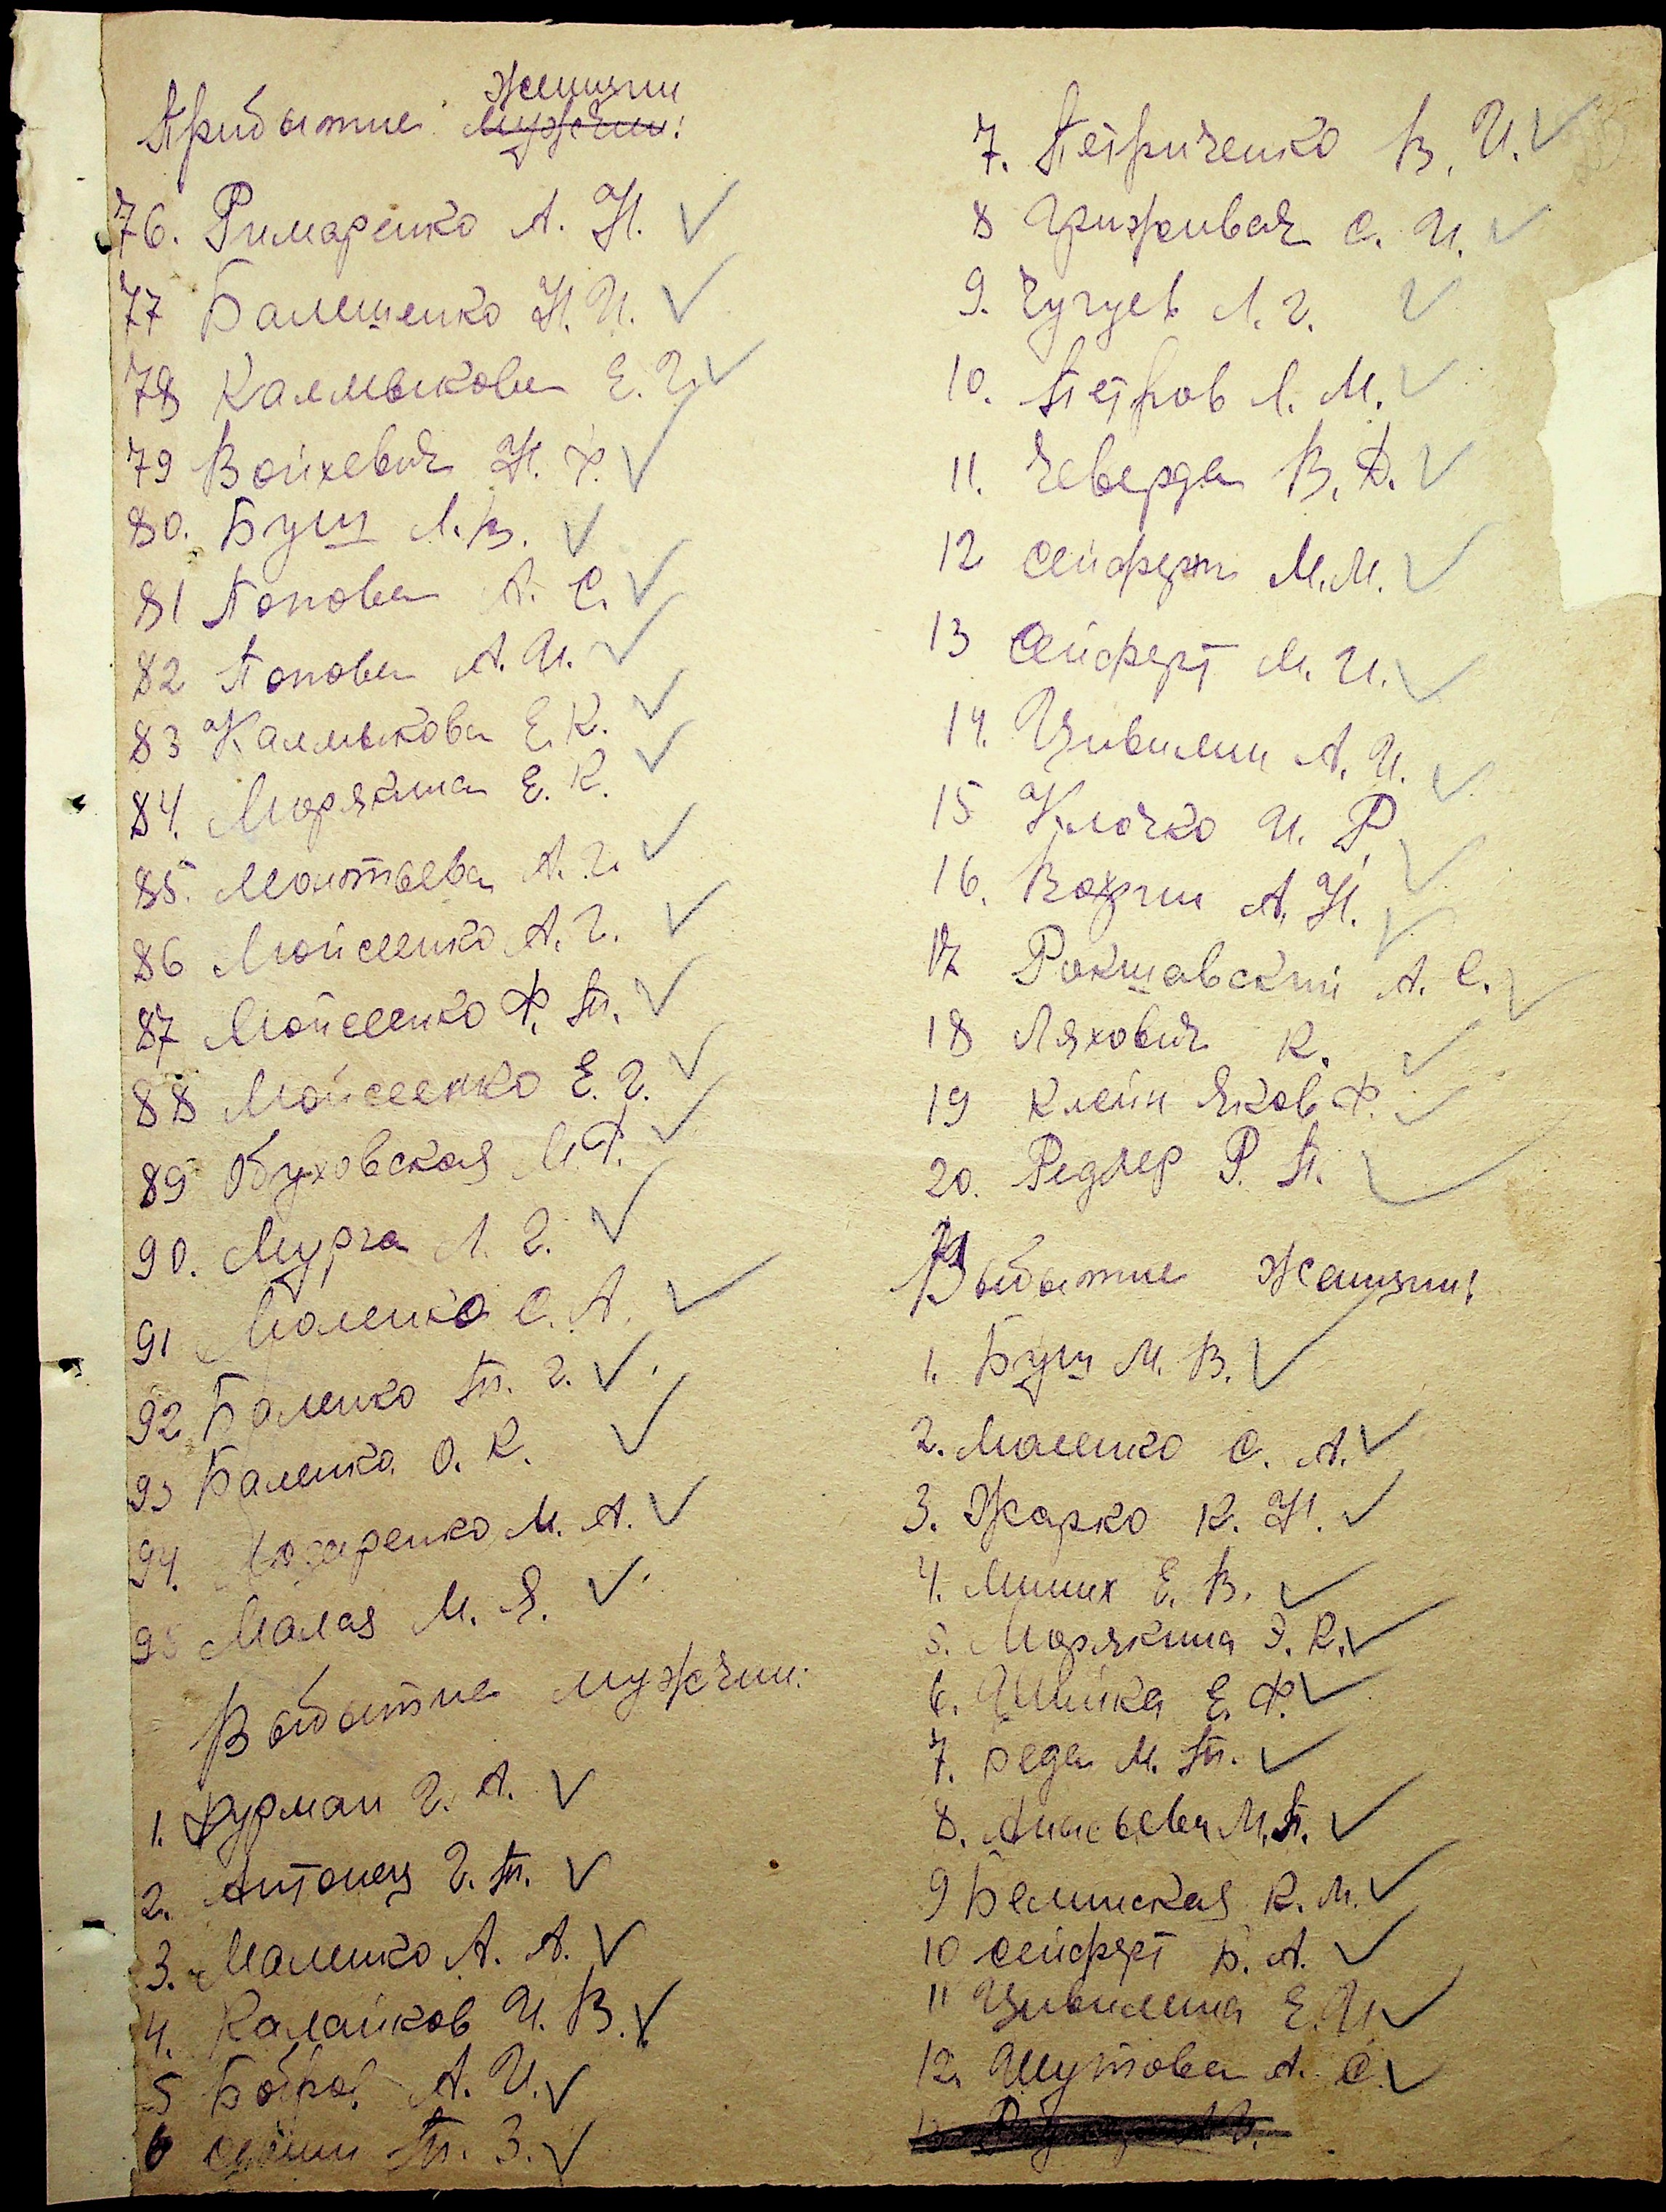 Женщин
Прибытие мужчин:
76. Римаренко А. Н.
77 Балешенко Н. И.
78 Калмыкова Е. Г.
79 Войхевич Н. Ф.
80. Буш Л. В.
81 Попова А. С.
82 Попова А. И.
83 Калмыкова Е. К.
84. Морякина Е. К.
85. Леонтьева А. Г.
86 Мойсеенко А. Г.
87 Мойсеенко Ф. П.
88 Мойсеенко Е. Г.
89 Обуховская М. Ф.
90. Мурга Л. Г.
91 Маленко С. А.
92 Баленко П. Г.
93 Баленко О. К.
94. М. А.
95 Малая М. Я.
Выбытие мужчин:
1. Фурман Г. А.
2. Антонец Г. П.
3. Маленко А. А.
4. Калайков И. В.
5 Бобров А. И.
6 П. З.
7. Петриченко В. И.
8 С. И.
9. Чугуев Л. Г.
10. Петров Л. М.
11. Чеверда В. Д.
12 Сейферт М. М.
13 Сейферт М. И.
14. Цивилин А. И.
15 Клочко И. Р.
16. А. Н.
17 Рокшавский А. С.
18 Ляхович К.
19 Клейн Яков Ф.
20. Редлер Р. П.
Выбытие Женщин:
1. Буш М. В.
2. Маленко С. А.
3. Жарко К. Н.
4. Миних Е. В.
5. Морякина Э. К.
6. Швыйка Е. Ф.
7. Беда М. П.
8. М. П.
9 Белинская К. М.
10 Сейферт Б. А.
11 Цивилина Е. И.
12. Шутова А. С.